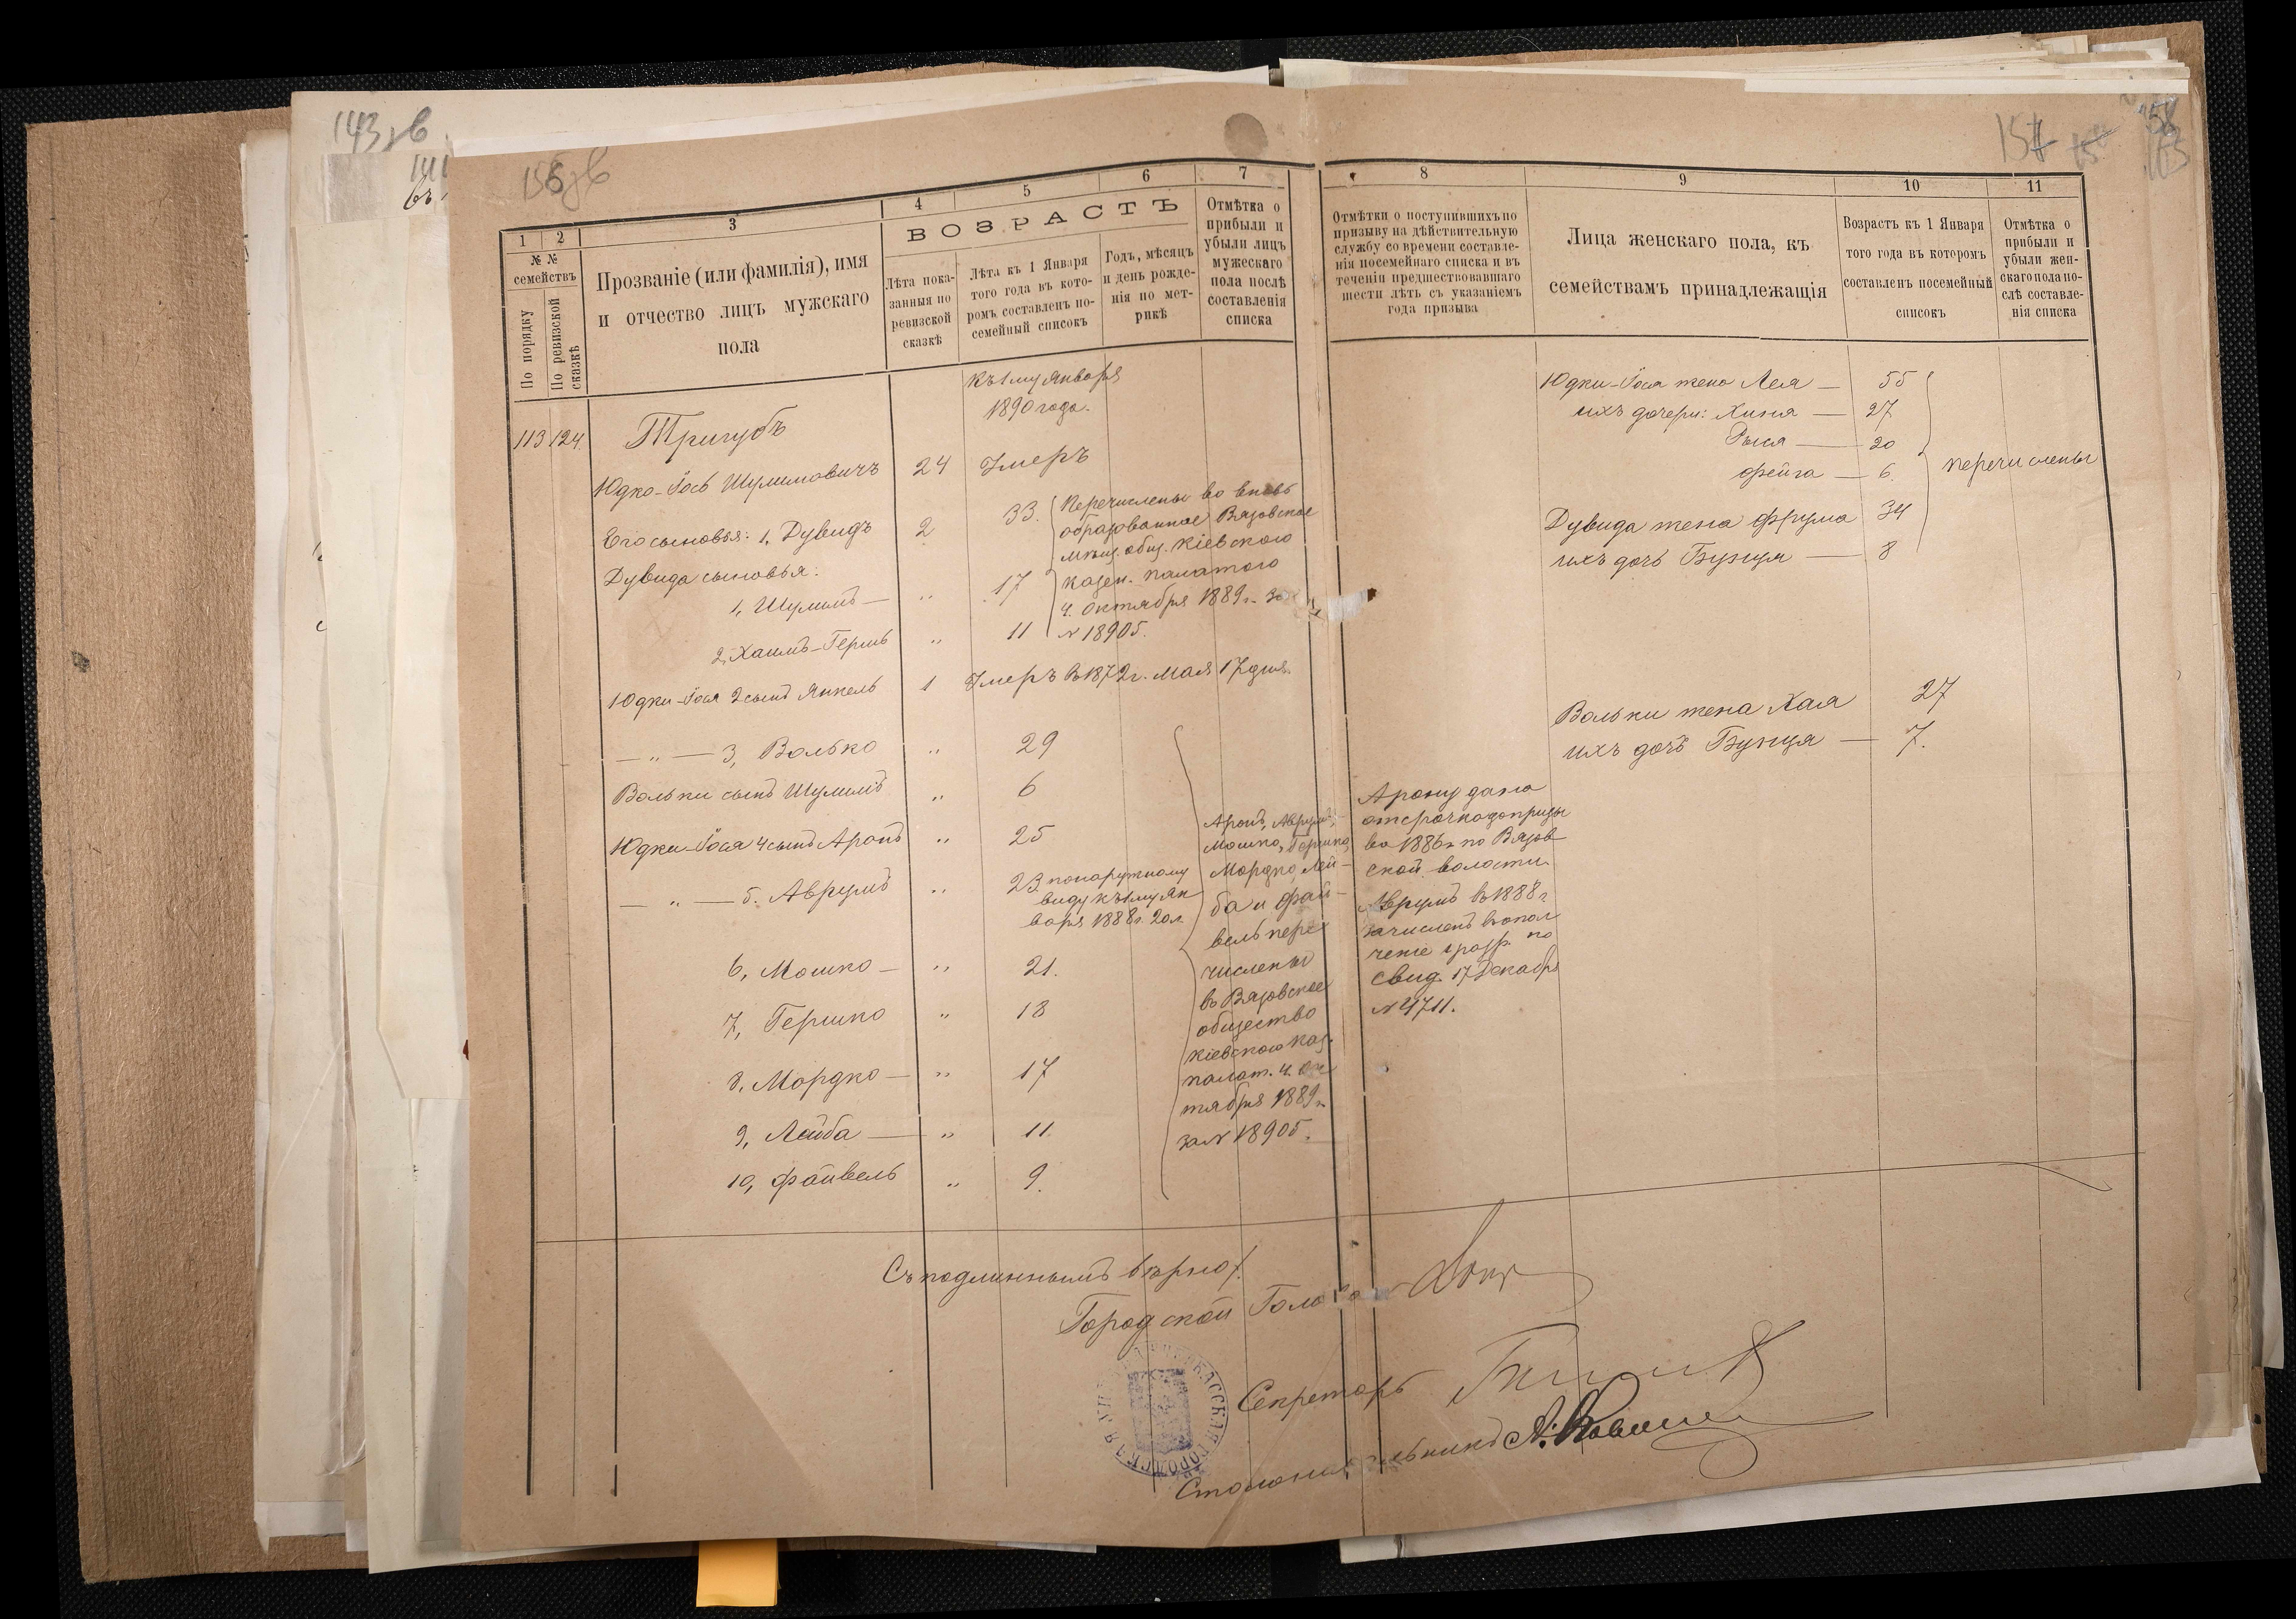 143 зв
155 зв
157
1
2
3
4
5
6
7
8
9
10
11
№ №
семействъ
По порядку
По ревизской
сказкѣ
Прозваніе (или фамилія), имя
и отчество лицъ мужскаго
пола
ВОЗРАСТЪ
Лѣта пока-
занныя по
ревизской
сказкѣ
Лѣта къ 1 Января
того года въ кото-
ромъ составленъ по-
семейный списокъ
Годъ, мѣсяцъ
и день рожде-
нія по мет-
рикѣ
Отмѣтка о
прибыли и
убыли лицъ
мужескаго
пола послѣ
составленія
списка
Отмѣтки о поступившихъ по
призыву на дѣйствительную
службу со времени составле-
нія посемейнаго списка и въ
теченіи предшествовавшаго
шести лѣтъ съ указаніемъ
года призыва
Лица женскаго пола, къ
семействамъ принадлежащія
Возрастъ къ 1 Января
того года въ которомъ
составленъ посемейный
списокъ
Отмѣтка о
прибыли и
убыли жен-
скаго пола по-
слѣ составле-
нія списка
Къ 1му Января
1890 года.
113 124. Тригубъ
Юдко-Іось Шулимовичъ 24 Умеръ
Его сыновья: 1, Дувидъ 2 33.
Перечислены во вновь
образованное Вязовское
мѣщ. общ. Кіевскою
казен. палатою
4. Октября 1889 г. за
№ 18905.
Дувида сыновья:
1, Шулимъ — " 17
2, Хаимъ-Гершъ " 11
Юдки-Іося 2 сынъ Янкель 1 Умеръ въ 1872 г. Мая 17 дня.
— " — 3, Волько " 29
Вольки сынъ Шулимъ " 6
Юдки-Іося 4 сынъ Аронъ " 25
— " — 5. Аврумъ " 23. по наружному
виду къ 1му Ян
варя 1888 г. 20 л.
6, Мошко — " 21.
7, Гершко " 18
8, Мордко — " 17
9, Лейба — " 11.
10, Файвель " 9.
Аронъ, Аврумъ,
Мошко, Гершко,
Мордко, Лей-
ба и Фай-
вель пере
числены
въ Вязовское
общество
Кіевскою каз.
палат. 4. Ок
тября 1889 г.
за № 18905.
Арону дана
отсрочка до призы
ва 1886 г. по Вязов
ской волости.
Аврумъ въ 1888 г
зачисленъ въ опол
ченіе 1 разр. по
свид. 17 Декабря
№ 4711.
Юдки-Іося жена Лея — 55
ихъ дочери: Хиня — 27
Рыся — 20
Фейга — 6.
перечислены
Дувида жена Фрума 34
ихъ дочь Бунця — 8
Вольки жена Хая 27
ихъ дочь Бунця — 7.
Съ подлиннымъ вѣрно:
Городской Голова
Секретарь
Столоначальникъ